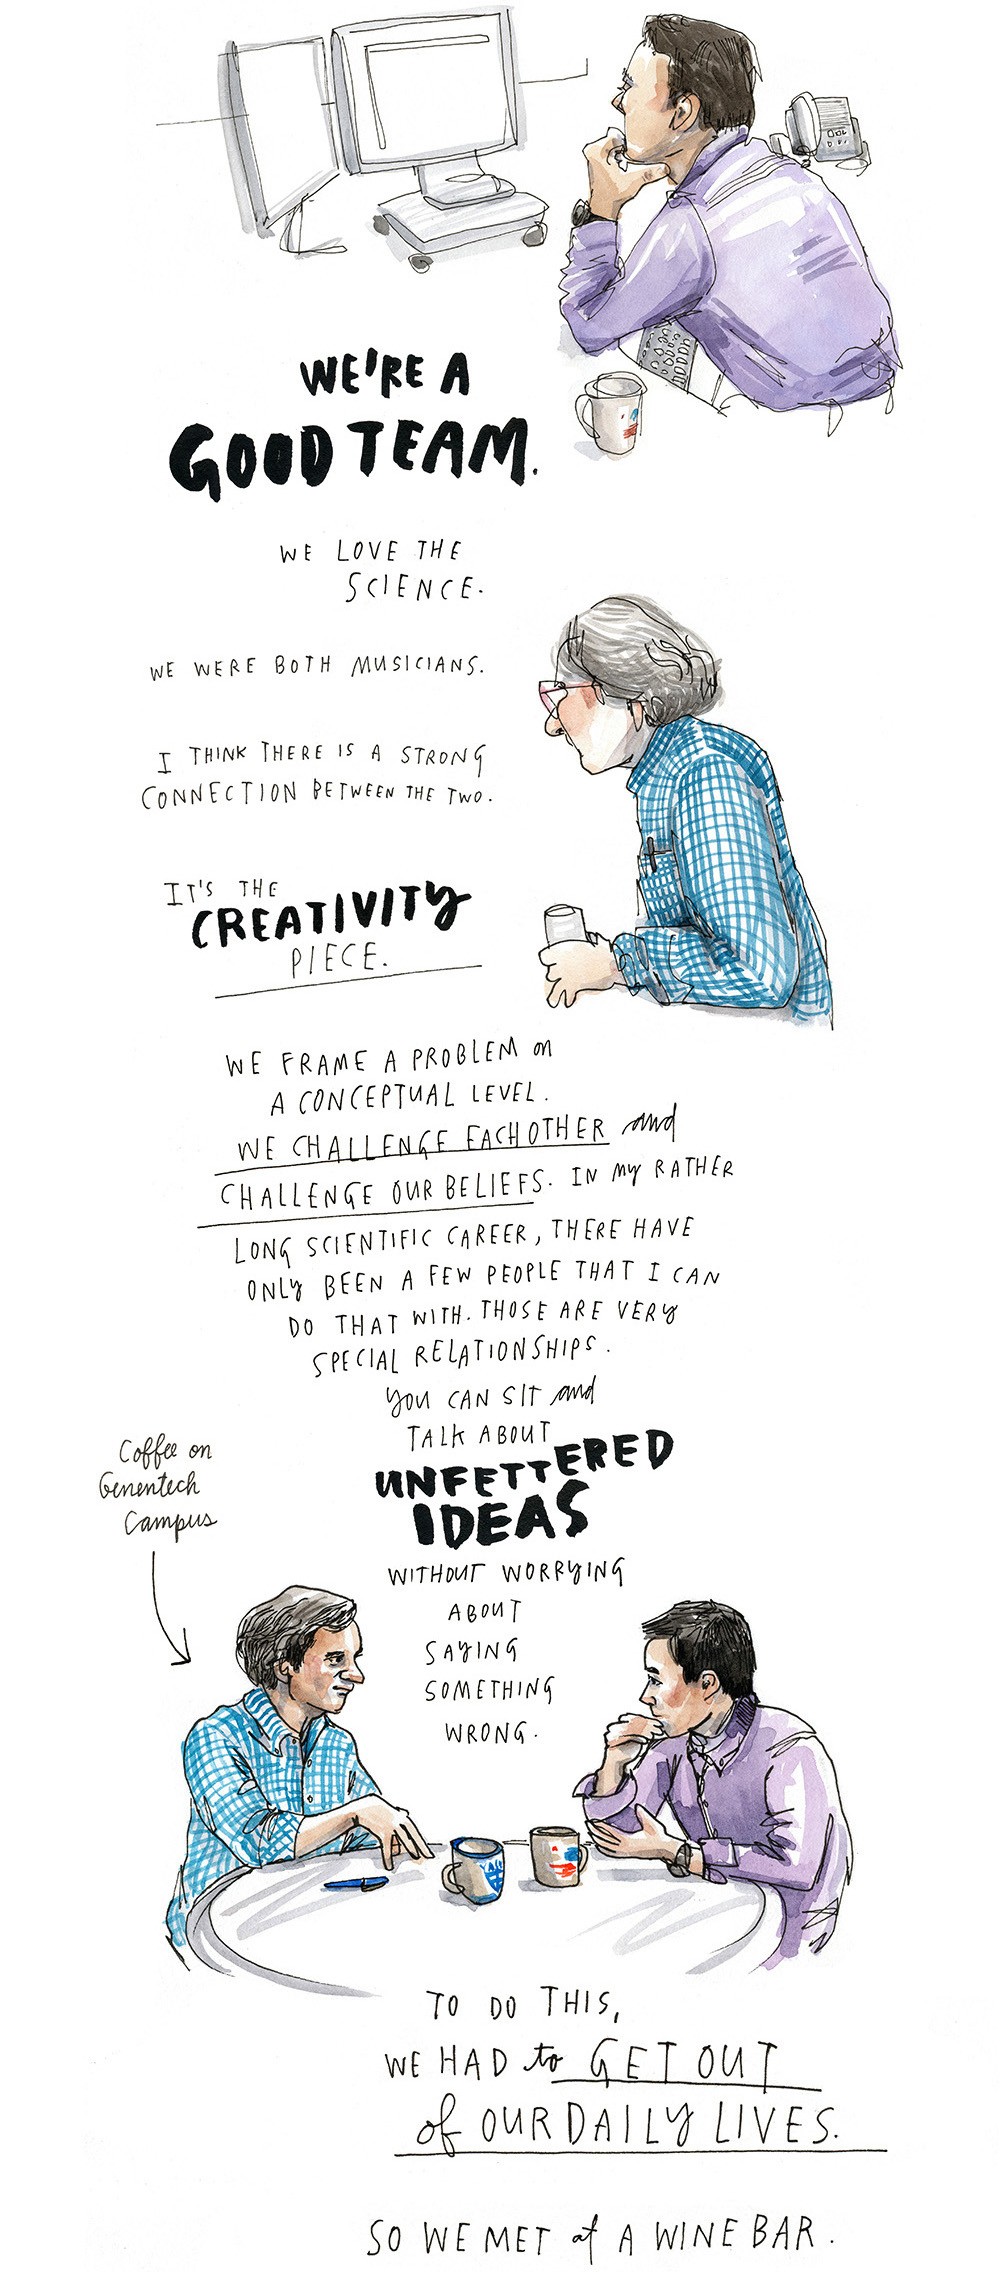 WE'RE A
GOOD TEAM.
WE LOVE THE
SCIENCE.
WE WERE BOTH MUSICIANS.
I THINK THERE IS A STRONG
CONNECTION BETWEEN THE TWO.
IT'S THE
CREATIVITY
PIECE.
WE FRAME A PROBLEM on
A CONCEPTUAL LEVEL.
WE CHALLENGE EACH OTHER and
CHALLENGE OUR BELIEFS. IN my RATHER
LONG SCIENTIFIC CAREER, THERE HAVE
ONLY BEEN A FEW PEOPLE THAT I CAN
DO THAT WITH. THOSE ARE VERY
SPECIAL RELATIONSHIPS.
YOU CAN SIT and
TALK ABOUT
UNFETTERED
IDEAS
WITHOUT WORRYING
ABOUT
SAYING
SOMETHING
WRONG.
Coffee on
Genentech
Campus
TO DO THIS,
WE HAD to GET OUT
of OUR DAILY LIVES.
SO WE MET at A WINE BAR.